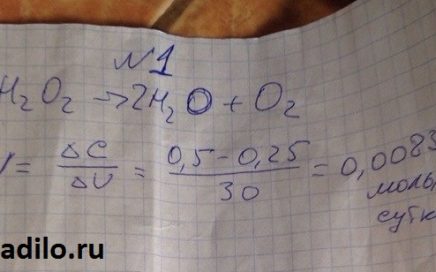 №1
H₂O₂ → 2H₂O + O₂
V = ΔC/ΔU = 0,5 - 0,25/30 = 0,0083
моль
сутк
adilo.ru